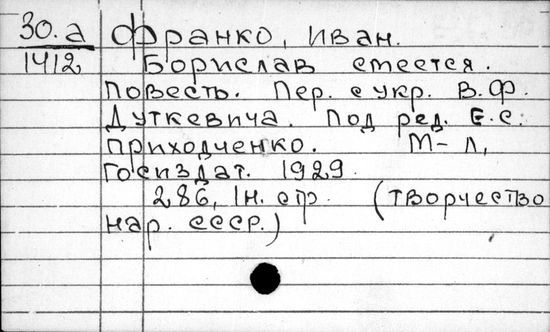 30.а Франко, Иван.
1412 Борислав смеется.
Повесть. Пер. с укр. В.Ф.
Дуткевича. Под ред. Е.С.
Приходченко. М-Л,
Госиздат. 1929.
286, 1н. стр. (творчество
нар. СССР.)